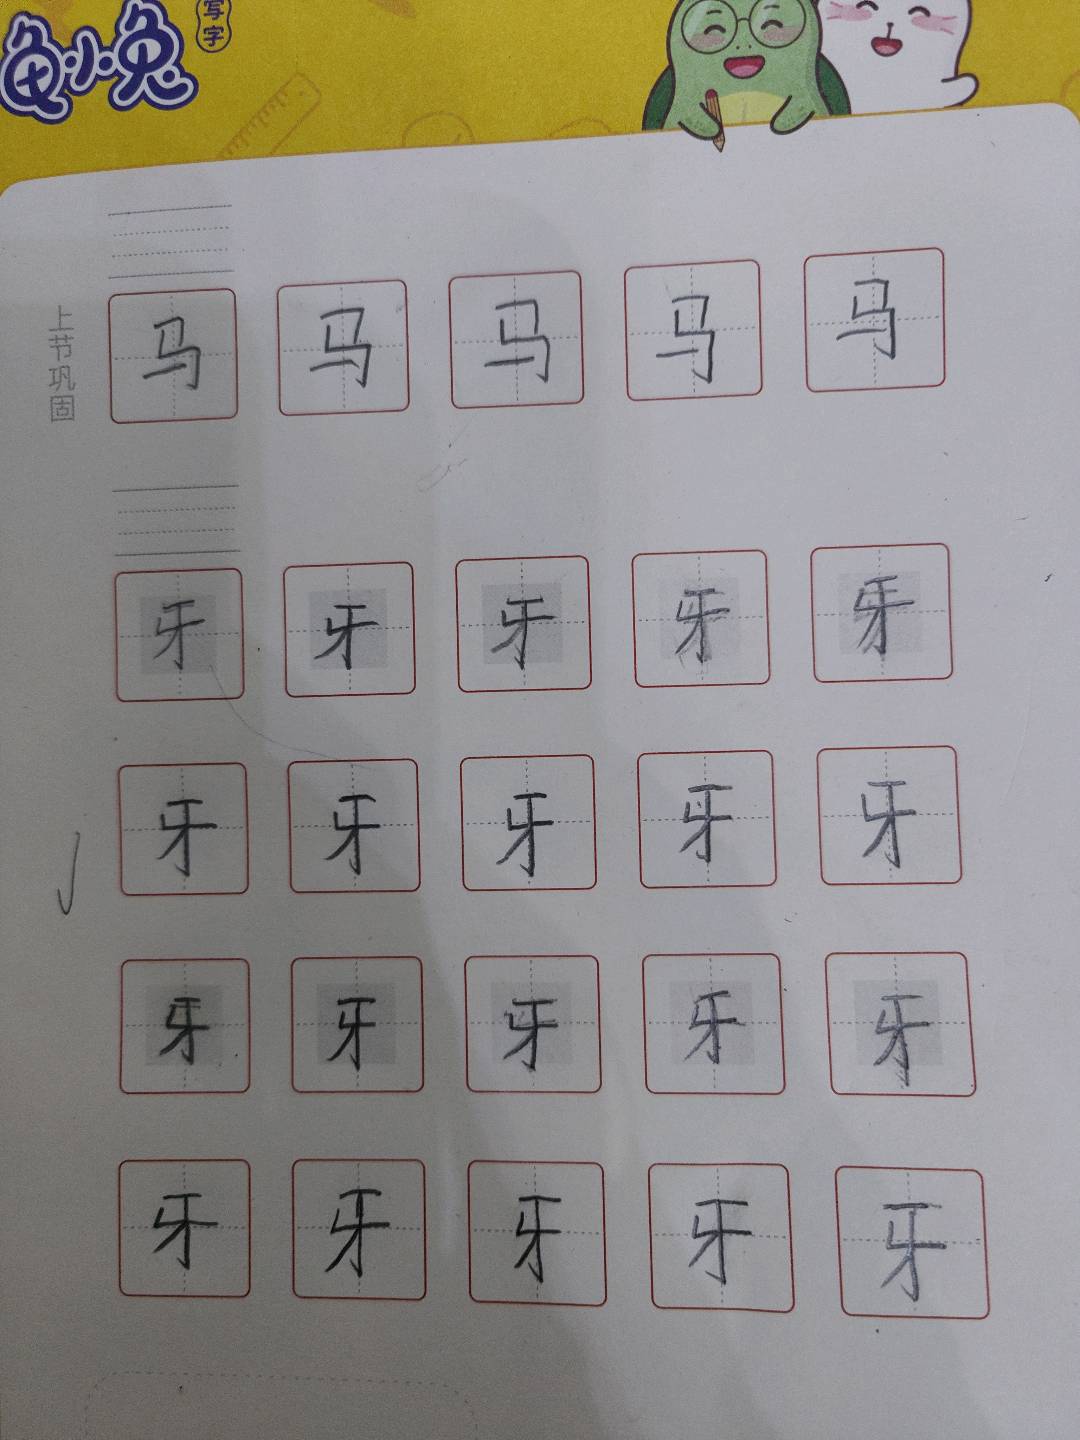 龟小兔
写字
上节巩固
马 马 马 马 马
牙 牙 牙 牙 牙
牙 牙 牙 牙 牙
牙 牙 牙 牙 牙
牙 牙 牙 牙 牙